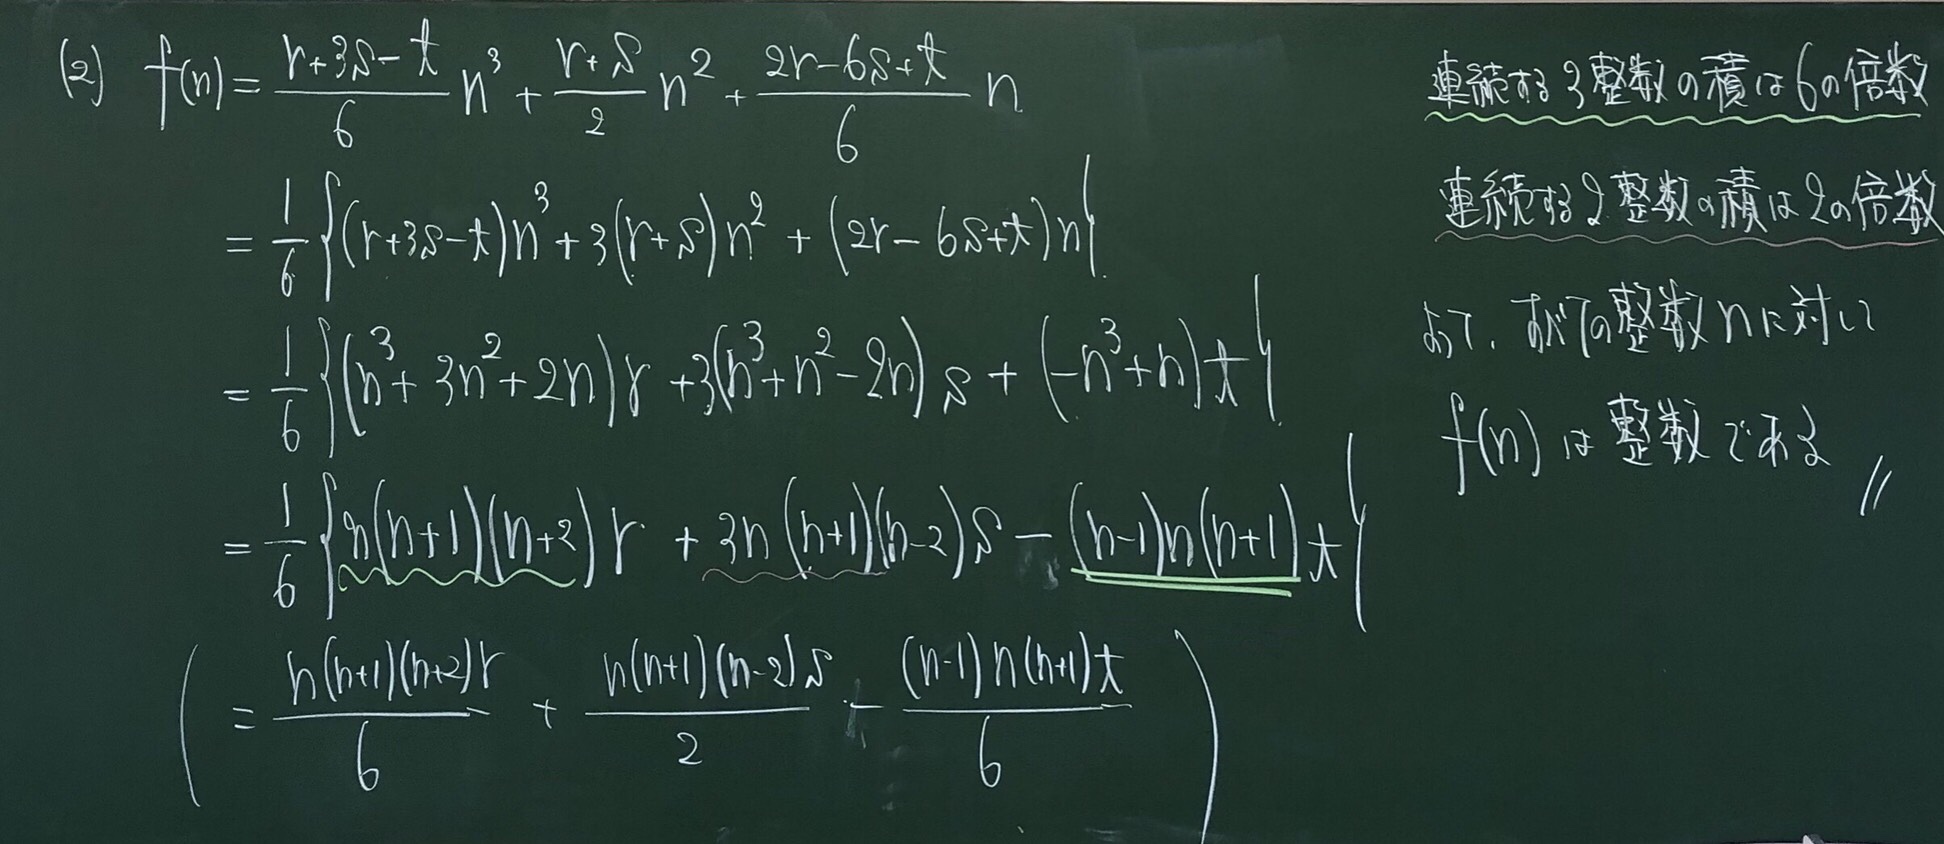 (2) f(n) = \frac{r+3s-t}{6} n^3 + \frac{r+s}{2} n^2 + \frac{2r-6s+t}{6} n
= \frac{1}{6} {(r+3s-t)n^3 + 3(r+s)n^2 + (2r-6s+t)n}
= \frac{1}{6} {(n^3+3n^2+2n)r + 3(n^3+n^2-2n)s + (-n^3+n)t}
= \frac{1}{6} {n(n+1)(n+2)r + 3n(n+1)(n-2)s - (n-1)n(n+1)t}
( = \frac{n(n+1)(n+2)r}{6} + \frac{n(n+1)(n-2)s}{2} - \frac{(n-1)n(n+1)t}{6} )
連続する3整数の積は6の倍数
連続する2整数の積は2の倍数
よって、すべての整数nに対して
f(n)は整数である //